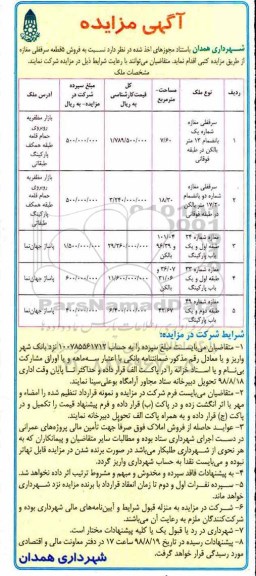 آگهی مزایده
شهرداری همدان باستناد مجوزهای اخذ شده در نظر دارد نسبت به فروش ۵قطعه سرقفلی مغازه
از طریق مزایده کتبی اقدام نماید. متقاضیان می‌توانند با رعایت شرایط ذیل در مزایده شرکت نمایند.
مشخصات ملک
ردیف نوع ملک مساحت- مترمربع کل قیمت‌کارشناسی به ریال مبلغ سپرده شرکت در مزایده- به ریال آدرس ملک
۱ سرقفلی مغازه شماره یک بانضمام ۱۲ متر بالکن در طبقه فوقانی ۷/۶۰ ۱/۷۸۹/۵۰۰/۰۰۰ ۵۰۰/۰۰۰/۰۰۰ بازار مظفریه روبروی حمام قلعه طبقه همکف پارکینگ طبقاتی
۲ سرقفلی مغازه شماره دو بانضمام ۱۷/۲۰ متر بالکن در طبقه فوقانی ۱۸/۳۰ ۲/۲۴۰/۰۰۰/۰۰۰ ۵۰۰/۰۰۰/۰۰۰ بازار مظفریه روبروی حمام قلعه طبقه همکف پارکینگ طبقاتی
۳ مغازه شماره ۲۴ طبقه اول و یک باب پارکینگ ۱۰۱/۰۴ و ۹۶/۳۹ بالکن ۲۹/۲۶۰/۰۰۰/۰۰۰ ۱/۵۰۰/۰۰۰/۰۰۰ پاساژ جهان‌نما
۴ مغازه شماره ۳۳ طبقه اول و یک باب پارکینگ ۲۶/۰۷ و ۳۱/۰۶ بالکن ۱۱/۶۰۰/۰۰۰/۰۰۰ ۶۰۰/۰۰۰/۰۰۰ پاساژ جهان‌نما
۵ مغازه شماره ۴۹ طبقه دوم و یک باب پارکینگ ۴۲/۶۷ پاساژ جهان‌نما
شرایط شرکت در مزایده:
۱- متقاضیان می‌بایست مبلغ سپرده را به حساب ۱۰۰۷۸۵۵۶۱۷۱۲ نزد بانک شهر
واریز و یا معادل رقم مذکور ضمانتنامه بانکی با اعتبار سه‌ماهه و یا اوراق مشارکت
بی‌نام و یا اسناد خزانه را در پاکت الف قرار داده و حداکثر تا پایان وقت اداری
۹۸/۸/۱۸ تحویل دبیرخانه ستاد مجاور آرامگاه بوعلی‌سینا نمایند.
۲- متقاضیان می‌بایست فرم شرکت در مزایده و نمونه قرارداد تنظیم شده را امضاء و
مهر یا اثر انگشت زده و در پاکت (ب) قرار داده و فرم پیشنهاد قیمت را تکمیل و در
پاکت (ج) قرار داده و به همراه پاکت الف تحویل دبیرخانه نمایند.
۳- عواید حاصله از فروش املاک فوق صرفاً جهت تأمین مالی پروژه‌های عمرانی
در دست اجرای شهرداری ستاد بوده و مطالبات سایر متقاضیان و پیمانکاران که به
هر نحوی از شهرداری طلبکار می‌باشد در صورت برنده شدن در مزایده قابل تهاتر
نبوده و می‌بایست نقداً به حساب شهرداری واریز گردد.
۴- به پیشنهادات فاقد سپرده و مخدوش و مبهم و مشروط ترتیب اثر داده نخواهد شد.
۵- سپرده نفرات اول و دوم تا زمان انعقاد قرارداد با برنده مزایده نزد شهرداری
خواهد ماند.
۶- شرکت در مزایده به منزله قبول شرایط و آیین‌نامه‌های مالی شهرداری بوده و
شرکت‌کنندگان ملزم به رعایت آن می‌باشند.
۷- شهرداری در رد یا قبول یک یا کلیه پیشنهادات مختار است.
۸- پیشنهادات رسیده در تاریخ ۹۸/۸/۱۹ ساعت ۱۷ در دفتر معاونت مالی و اقتصادی
مورد رسیدگی قرار خواهد گرفت.
شهرداری همدان